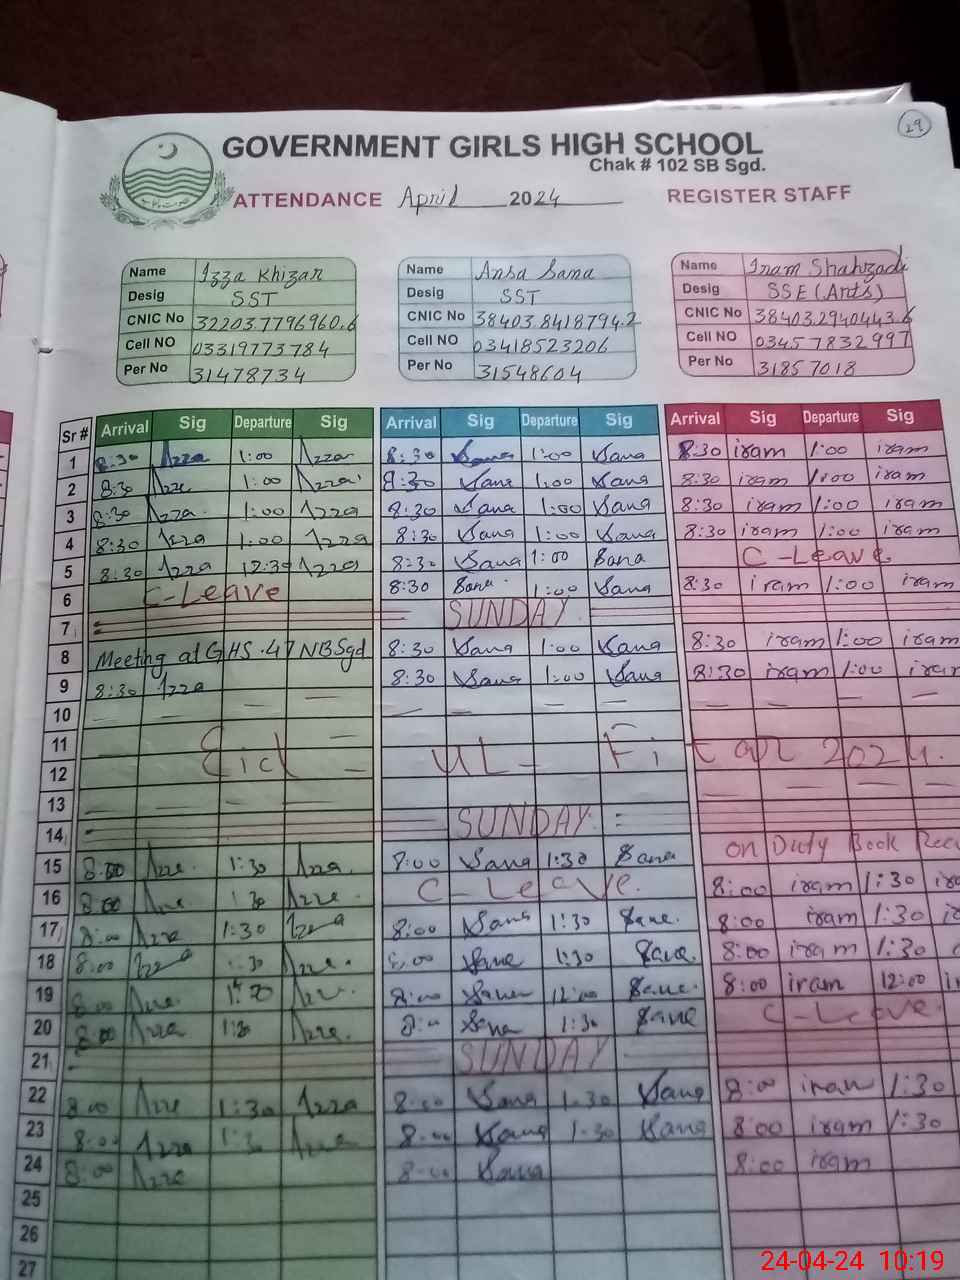 29
GOVERNMENT GIRLS HIGH SCHOOL
Chak # 102 SB Sgd.
ATTENDANCE April 2024 REGISTER STAFF
Name Izza Khizar Name Ansa Sana Name Iram Shahzadi
Desig SST Desig SST Desig SSE (Arts)
CNIC No 32203.7796960.6 CNIC No 38403.8418794.2 CNIC No 38403.2940443.6
Cell NO 03319773784 Cell NO 03418523206 Cell NO 03457832997
Per No 31478734 Per No 31548604 Per No 31857018
Sr # Arrival Sig Departure Sig Arrival Sig Departure Sig Arrival Sig Departure Sig
1 8:30 Izza 1:00 Izza 8:30 Sana 1:00 Sana 8:30 iram 1:00 iram
2 8:30 Izza 1:00 Izza 8:30 Sana 1:00 Sana 8:30 iram 1:00 iram
3 8:30 Izza 1:00 Izza 8:30 Sana 1:00 Sana 8:30 iram 1:00 iram
4 8:30 Izza 1:00 Izza 8:30 Sana 1:00 Sana 8:30 iram 1:00 iram
5 8:30 Izza 12:30 Izza 8:30 Sana 1:00 Sana C-Leave
6 C-Leave 8:30 Sana 1:00 Sana 8:30 iram 1:00 iram
7 SUNDAY
8 Meeting at GHS.47 NB Sgd 8:30 Sana 1:00 Sana 8:30 iram 1:00 iram
9 8:30 Izza 8:30 Sana 1:00 Sana 8:30 iram 1:00 iram
10
11 Eid - UL- Fitar 2024.
12
13
14 SUNDAY
15 8:00 Izza 1:30 Izza 8:00 Sana 1:30 Sana on Duty Book
16 8:00 Izza 1:30 Izza C-Leave. 8:00 iram 1:30
17 8:00 Izza 1:30 Izza 8:00 Sana 1:30 Sana 8:00 iram 1:30
18 8:00 Izza 1:30 Izza 8:00 Sana 1:30 Sana 8:00 iram 1:30
19 8:00 Izza Izza 8:00 Sana 12:00 Sana 8:00 iram 12:00
20 8:00 Izza 1:30 Izza 8:00 Sana 1:30 Sana C-Leave
21 SUNDAY
22 8:00 Izza 1:30 Izza 8:00 Sana 1:30 Sana 8:00 iram 1:30
23 8:00 Izza 1:30 Izza 8:00 Sana 1:30 Sana 8:00 iram 1:30
24 8:00 Izza 8:00 Sana 8:00 iram
25
26
27
24-04-24 10:19